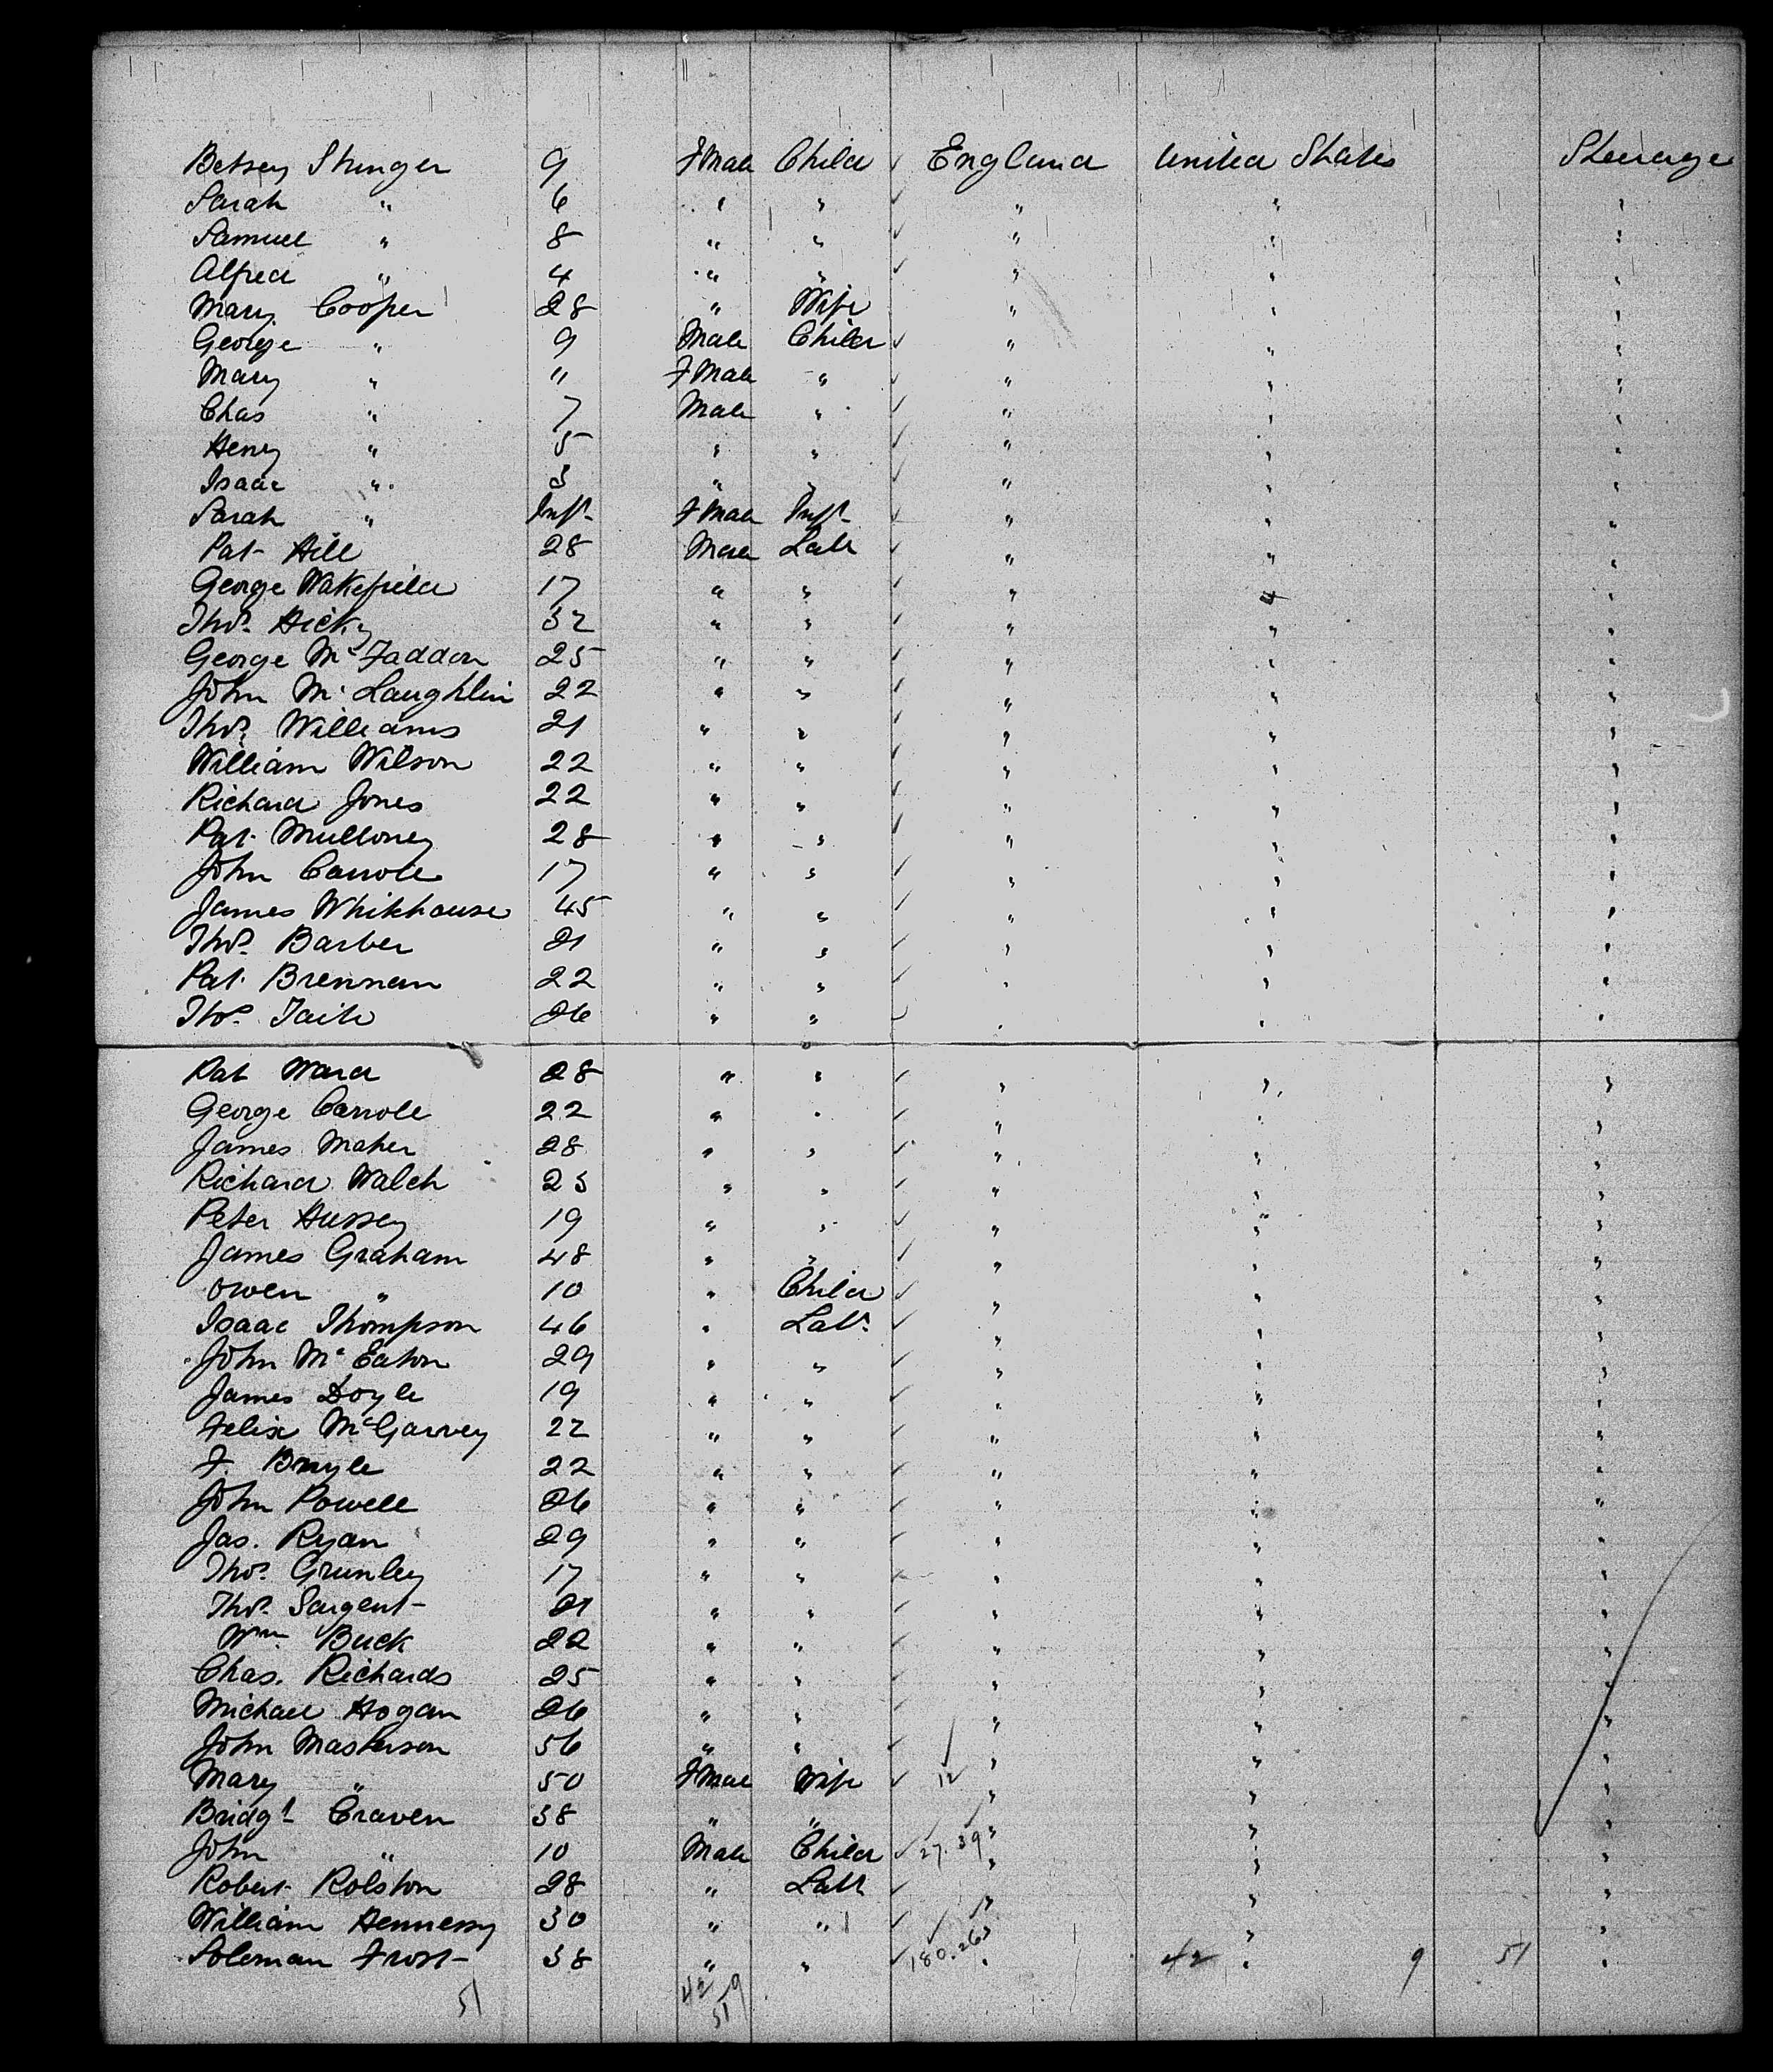 Betsey Stringer 9 FMale Child ✓ England United States Steerage
Sarah " 6 " " ✓ " " "
Samuel " 8 " " ✓ " " "
Alfred " 4 " " ✓ " " "
Mary Cooper 28 " Wife " " "
George " 9 Male Child ✓ " " "
Mary " " FMale " ✓ " " "
Chas " 7 Male " ✓ " " "
Henry " 5 " " ✓ " " "
Isaac " 3 " " ✓ " " "
Sarah " Inft FMale Inft ✓ " " "
Pat Hill 28 Male Labr ✓ " " "
George Wakefield 17 " " ✓ " " "
Thos. Hicky 32 " " ✓ " " "
George McFaddon 25 " " ✓ " " "
John McLaughlin 22 " " ✓ " " "
Thos. Williams 21 " " ✓ " " "
William Wilson 22 " " ✓ " " "
Richard Jones 22 " " ✓ " " "
Pat. Mulloney 28 " " ✓ " " "
John Carrole 17 " " ✓ " " "
James Whitehouse 45 " " ✓ " " "
Thos. Barber 21 " " ✓ " " "
Pat. Brennan 22 " " ✓ " " "
Thos. Taite 26 " " ✓ " " "
Pat Ward 28 " " ✓ " " "
George Carrole 22 " " ✓ " " "
James Maher 28 " " ✓ " " "
Richard Walch 23 " " ✓ " " "
Peter Hussey 19 " " ✓ " " "
James Graham 48 " " ✓ " " "
Owen " 10 " Child ✓ " " "
Isaac Thompson 46 " Labr. ✓ " " "
John McEaton 29 " " ✓ " " "
James Doyle 19 " " ✓ " " "
Felix McGarvey 22 " " ✓ " " "
F. 22 " " ✓ " " "
John Powell 26 " " ✓ " " "
Jas. Ryan 29 " " ✓ " " "
Thos. Grunley 17 " " ✓ " " "
Thos. Sargent 21 " " ✓ " " "
Wm. Buck 22 " " ✓ " " "
Chas. Richards 25 " " ✓ " " "
Michael Hogan 26 " " ✓ " " "
John Masterson 56 " " ✓ " " "
Mary " 50 FMale Wife ✓ 12 " " "
Bridgt Craven 38 " " " " "
John " 10 Male Child ✓ 27.39 " " "
Robert Rolston 28 " Labr ✓ " " "
William Hennessy 30 " " ✓ " " "
Soloman Frost 38 " " ✓ 180.263 " 42 " 9 51 "
51 42 9
51